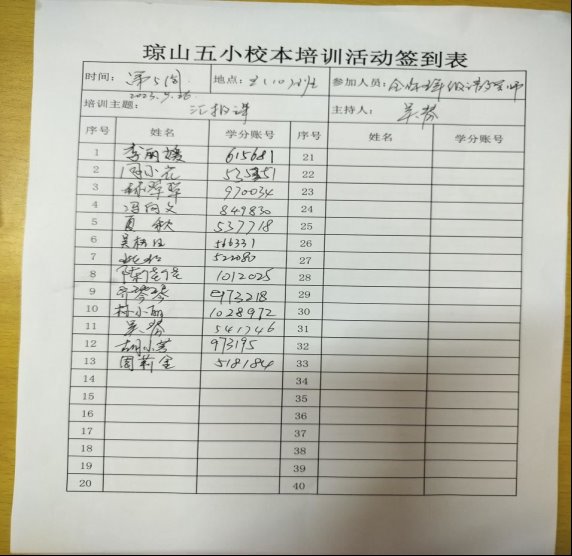 琼山五小校本培训活动签到表
时间：第5周 地点：五（10）班 参加人员：全体
2023.9.26
培训主题：汇报课 主持人：
序号 姓名 学分账号 序号 姓名 学分账号
1 李丽媛 615681 21
2 周小花 22
3 970034 23
4 冯 文 849830 24
5 夏秋 537718 25
6 566331 26
7 522080 27
8 陈 1012025 28
9 973218 29
10 林小丽 1028972 30
11 541746 31
12 胡小芳 973195 32
13 周莉金 518184 33
14 34
15 35
16 36
17 37
18 38
19 39
20 40